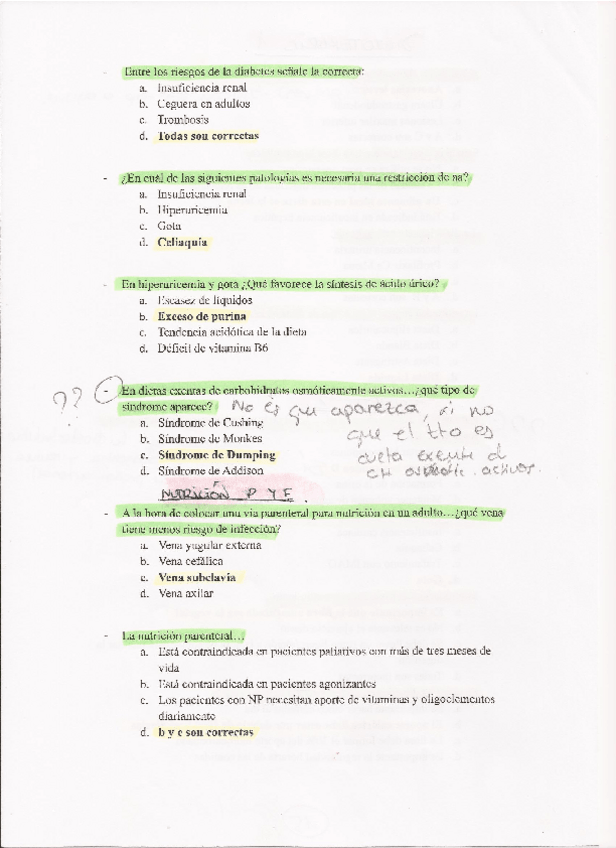 - Entre los riesgos de la diabetes señale la correcta:
a. Insuficiencia renal
b. Ceguera en adultos
c. Trombosis
d. Todas son correctas
- ¿En cuál de las siguientes patologías es necesaria una restricción de na?
a. Insuficiencia renal
b. Hiperuricemia
c. Gota
d. Celiaquía
- En hiperuricemia y gota ¿Qué favorece la síntesis de ácido úrico?
a. Escasez de líquidos
b. Exceso de purina
c. Tendencia acidótica de la dieta
d. Déficit de vitamina B6
?? - En dietas exentas de carbohidratos osmóticamente activos…¿qué tipo de
síndrome aparece? No es que aparezca, si no
a. Síndrome de Cushing
que el tto es
b. Síndrome de Monkes
c. Síndrome de Dumping
dieta exente d
d. Síndrome de Addison
CH osmotic. activos.
NUTRICIÓN P Y E.
- A la hora de colocar una vía parenteral para nutrición en un adulto…¿qué vena
tiene menos riesgo de infección?
a. Vena yugular externa
b. Vena cefálica
c. Vena subclavia
d. Vena axilar
- La nutrición parenteral…
a. Está contraindicada en pacientes paliativos con más de tres meses de
vida
b. Está contraindicada en pacientes agonizantes
c. Los pacientes con NP necesitan aporte de vitaminas y oligoelementos
diariamente
d. b y c son correctas